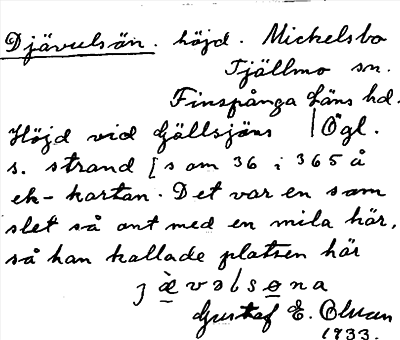 Djävulsän. höjd. Mickelsbo
Tjällmo sn.
Finspånga läns hd.
Höjd vid Gällsjöns | Ögl.
s. strand [som 36 i 365 å
ek-kartan. Det var en som
slet så ont med en mila här,
så han kallade platsen här
jævəlsena
Gustaf E. Olsson
1933.